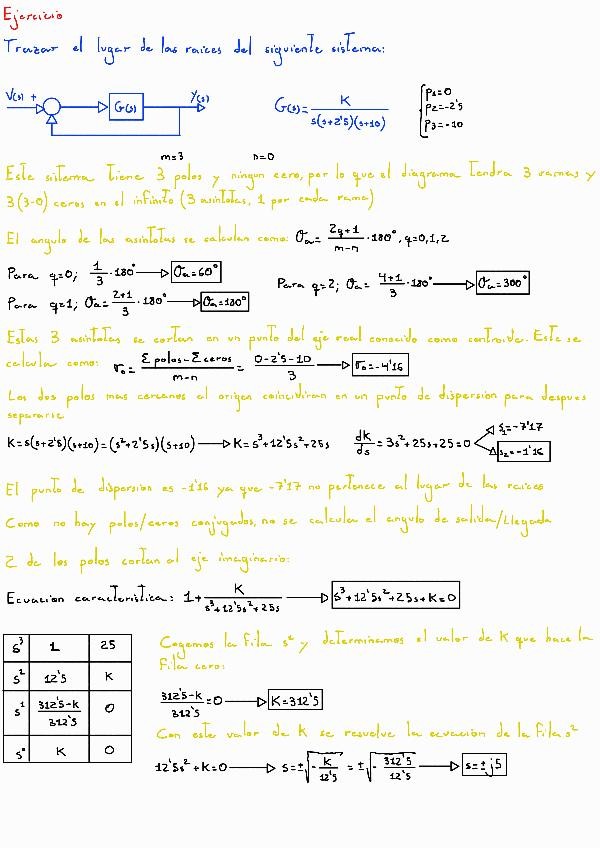 Ejercicio
Trazar el lugar de las raices del siguiente sistema:
V(s) + G(s) Y(s)
G(s)= K / s(s+2'5)(s+10)
P1=0
P2=-2'5
P3=-10
m=3 n=0
Este sistema tiene 3 polos y ningun cero, por lo que el diagrama tendra 3 ramas y
3 (3-0) ceros en el infinito (3 asintotas, 1 por cada rama)
El angulo de las asintotas se calculan como: σa= 2q+1 / m-n · 180°, q=0,1,2
Para q=0; 1/3 · 180° → σa=60°
Para q=2; σa= 4+1 / 3 · 180° → σa=300°
Para q=1; σa= 2+1 / 3 · 180° → σa=180°
Estas 3 asintotas se cortan en un punto del eje real conocido como centroide. Este se
calcula como: σo= Σ polos - Σ ceros / m-n = 0-2'5-10 / 3 → σo=-4'16
Los dos polos mas cercanos al origen coincidiran en un punto de dispersion para despues
separarse
K=s(s+2'5)(s+10)=(s²+2'5s)(s+10) → K=s³+12'5s²+25s dk/ds = 3s²+25s+25=0 s1=-7'17 s2=-1'16
El punto de dispersion es -1'16 ya que -7'17 no pertenece al lugar de las raices
Como no hay polos/ceros conjugados, no se calcula el angulo de salida/llegada
2 de los polos cortan al eje imaginario:
Ecuacion caracteristica: 1+ K / s³+12'5s²+25s → s³+12'5s²+25s+K=0
s³ 1 25
s² 12'5 K
s¹ 312'5-k / 312'5 0
s° K 0
Cogemos la fila s² y determinamos el valor de k que hace la
fila cero:
312'5-k / 312'5 =0 → K=312'5
Con este valor de k se resuelve la ecuacion de la fila s²
12'5s²+K=0 → s=±√- K / 12'5 = ±√- 312'5 / 12'5 → s=±j5